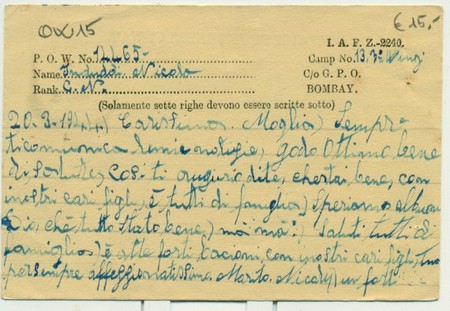 OW 15
€ 15,-
I. A. F. Z.-2240.
P. O. W. No. 12465-
Camp No. 13.
Name Nicola
C/o G. P. O.
Rank.
BOMBAY.
(Solamente sette righe devono essere scritte sotto)
20-3-1944) Carissima Moglia) Sempre
ti comunica le mie notizie, godo Ottimo bene
di salute, Così ti auguri di te, che sta, bene, con
i nostri cari figli, è tutti di famiglia) Speriamo al buon
Dio, ché tutto stato bene, mai mai) Saluti tutti di
famiglia) è alte forti, bacioni, con i nostri cari figli, tuo
per sempre affezzionatissimo Marito, Nicola) un forti